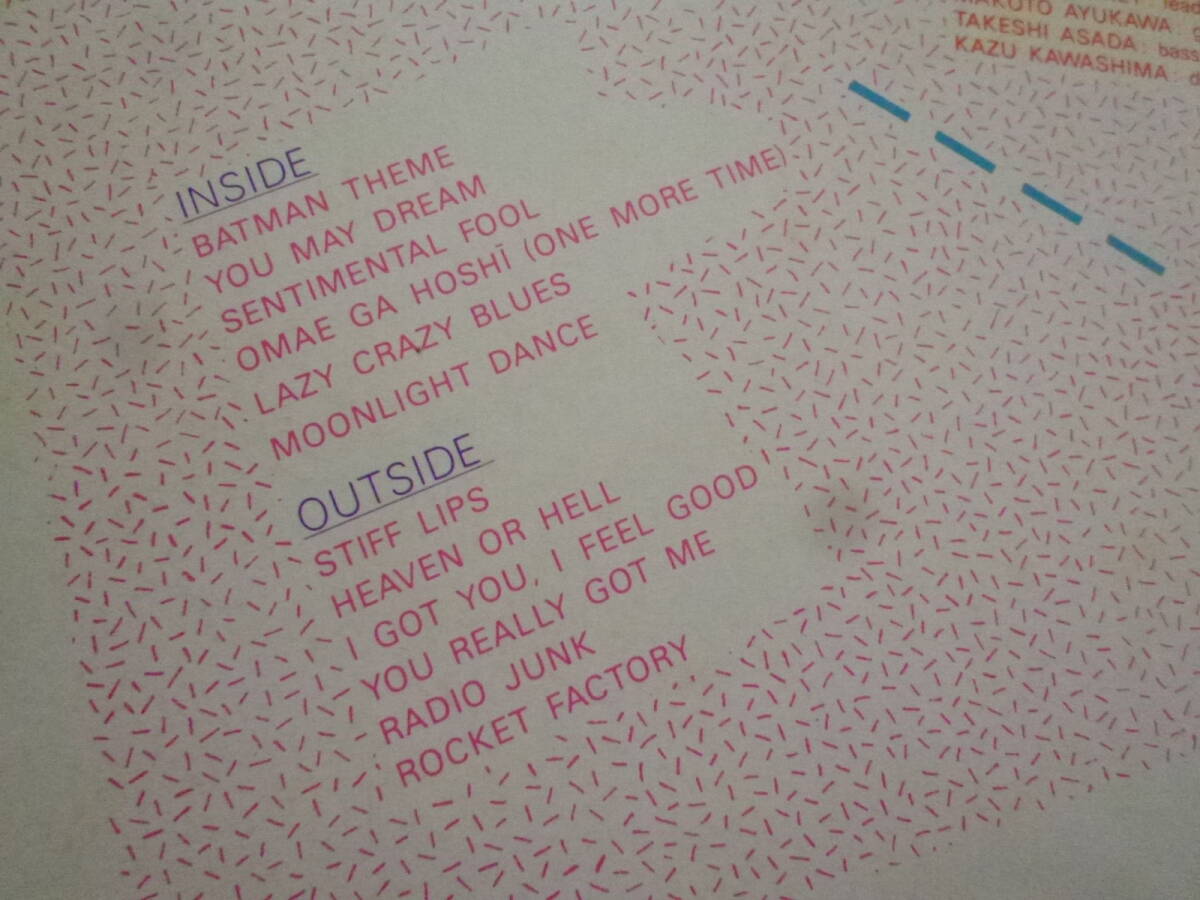 MAKOTO AYUKAWA
TAKESHI ASADA: bass
KAZU KAWASHIMA
INSIDE
BATMAN THEME
YOU MAY DREAM
SENTIMENTAL FOOL
OMAE GA HOSHĪ (ONE MORE TIME)
LAZY CRAZY BLUES
MOONLIGHT DANCE
OUTSIDE
STIFF LIPS
HEAVEN OR HELL
I GOT YOU, I FEEL GOOD
YOU REALLY GOT ME
RADIO JUNK
ROCKET FACTORY